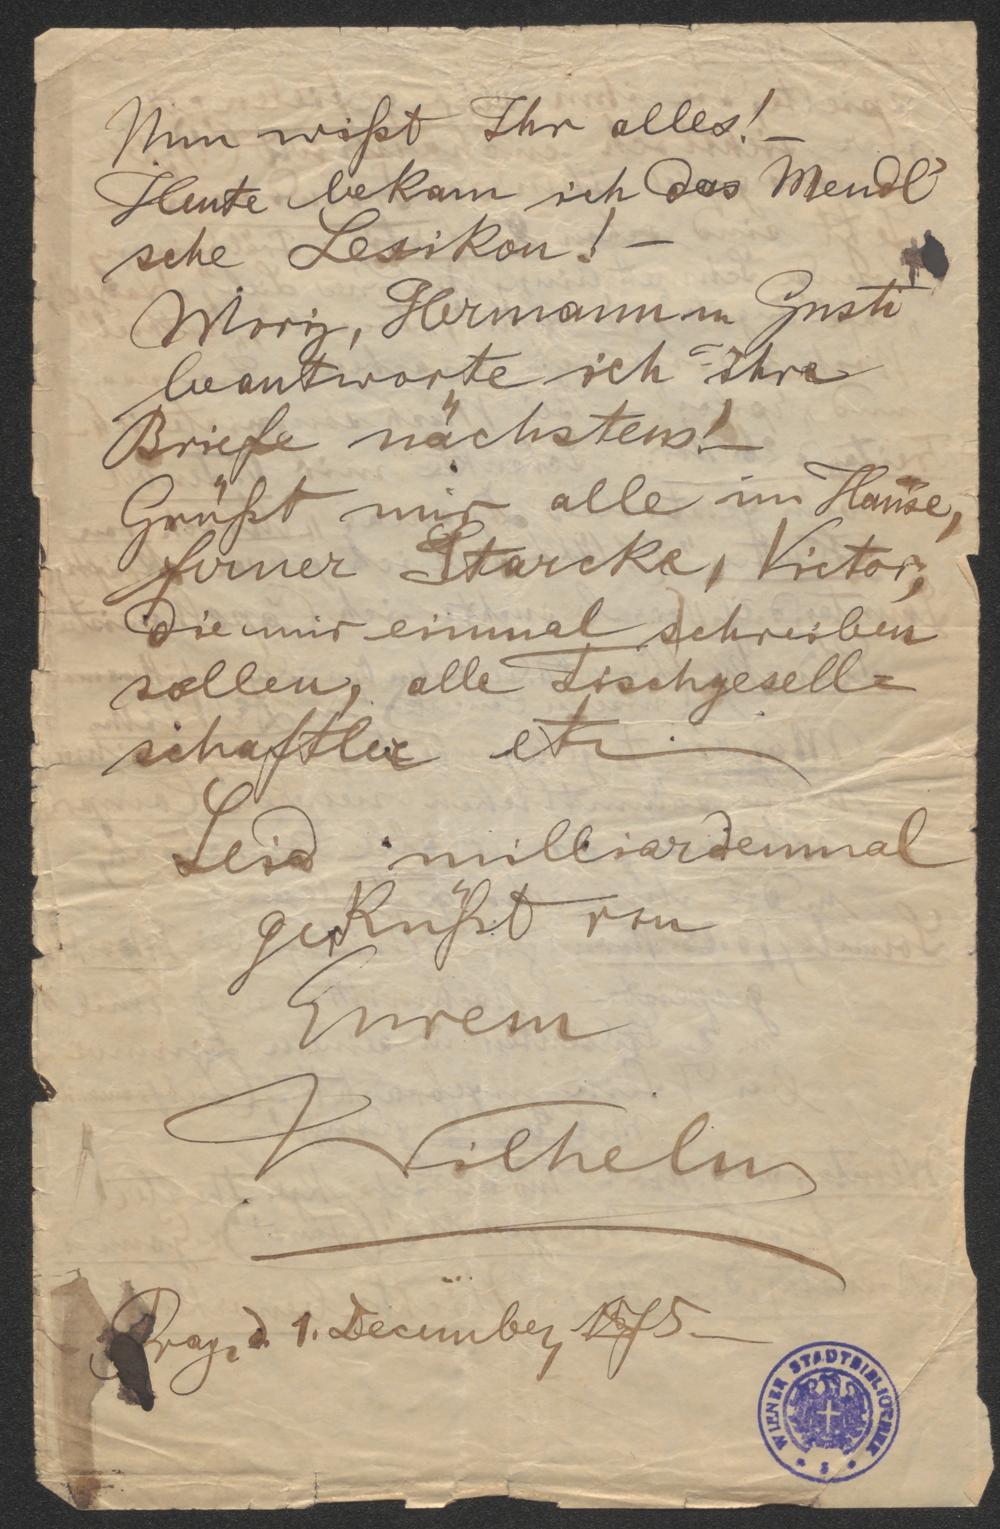 Nun wißt Ihr alles! –
Heute bekam ich das Mendl'
sche Lexikon! –
Moriz, Hermann u Gusti
beantworte ich ihre
Briefe nächstens! –
Grüßt mir alle im Hause,
ferner Starcke, Victor,
die mir einmal schreiben
sollen, alle Tischgesell=
schaftler etc
Seid milliardenmal
geküßt von
Eurem
Wilhelm
Prag, d. 1. December 1875 –
WIENER STADTBIBLIOTHEK